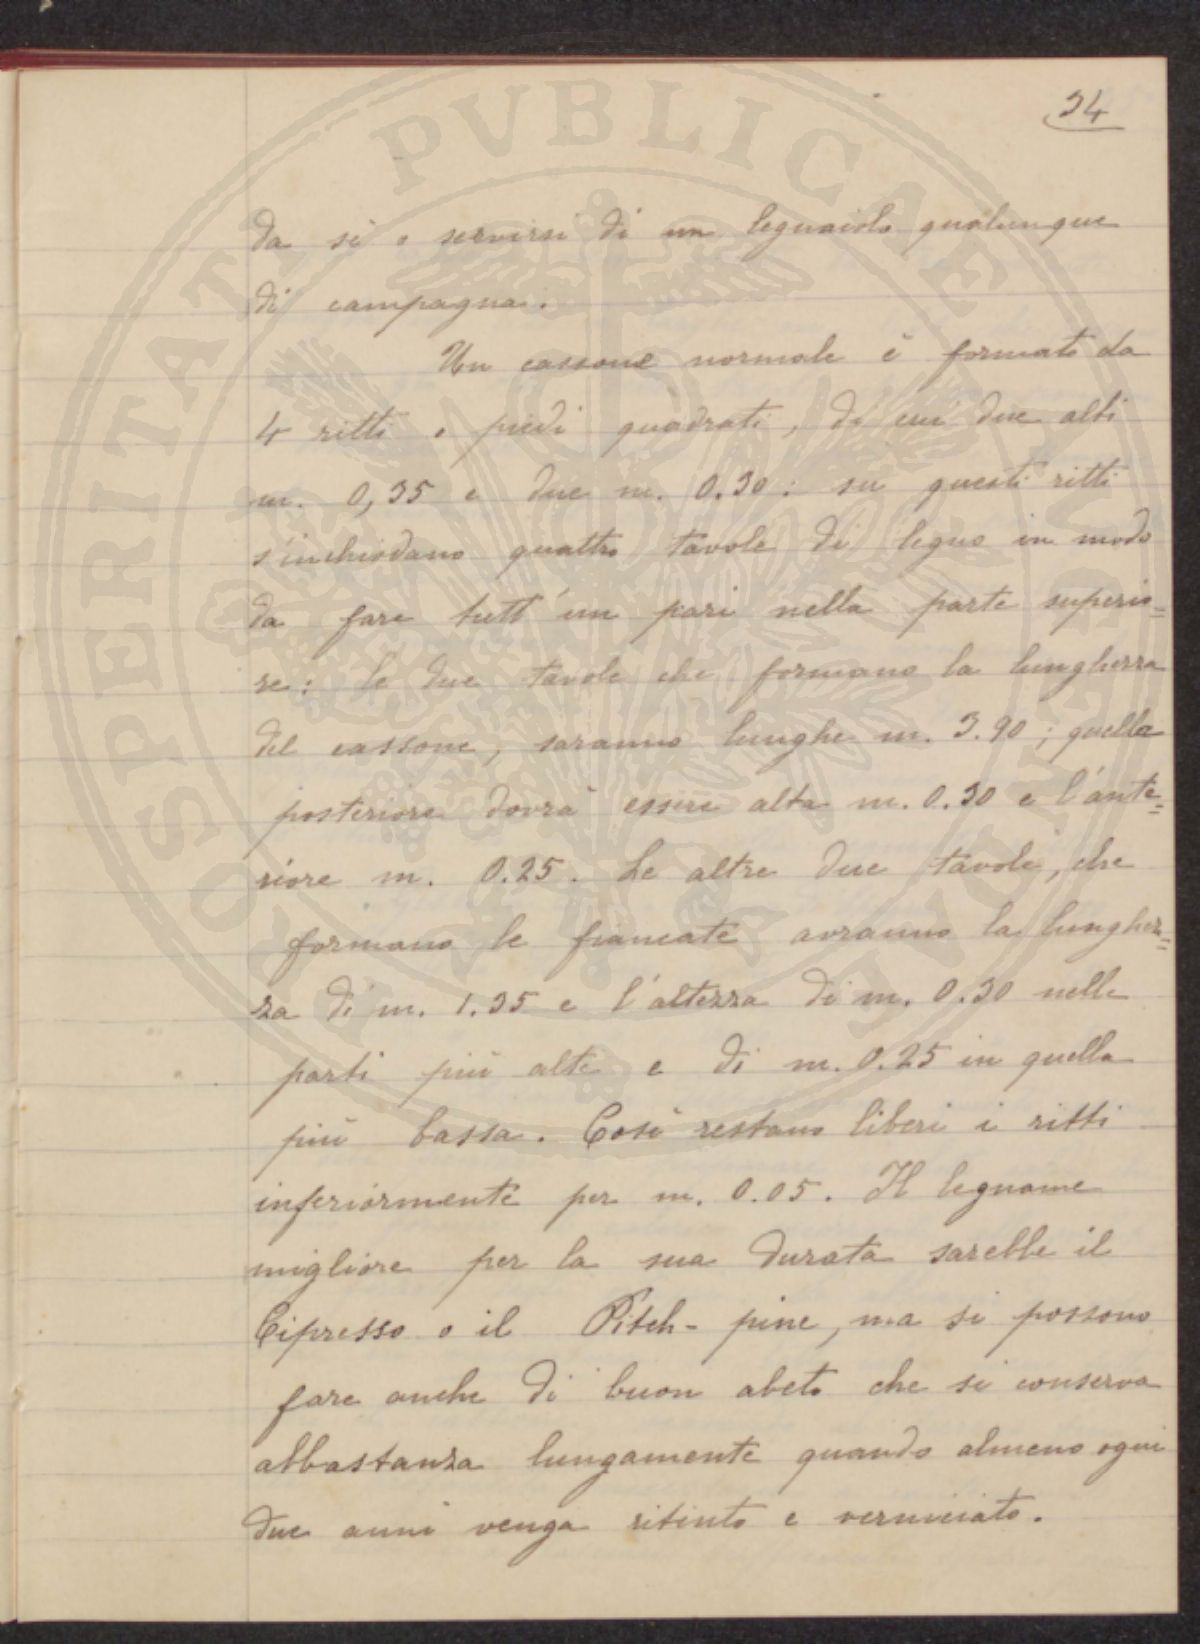 34
da sè o servirsi di un legnaiolo qualunque
di campagna.
Un cassone normale è formato da
4 ritti o piedi quadrati, di cui due alti
m. 0,35 e due m. 0.30: su questi ritti
s'inchiodano quattro tavole di legno in modo
da fare tutt'un pari nella parte superio=
re: le due tavole che formano la lunghezza
del cassone, saranno lunghe m. 3.90; quella
posteriore dovrà essere alta m. 0.30 e l'ante=
riore m. 0.25. Le altre due tavole, che
formano le fiancate avranno la lunghez=
za di m. 1.35 e l'altezza di m. 0.30 nelle
parti più alte e di m. 0.25 in quella
più bassa. Così restano liberi i ritti
inferiormente per m. 0.05. Il legname
migliore per la sua durata sarebbe il
Cipresso o il Pitch-pine, ma si possono
fare anche di buon abeto che si conserva
abbastanza lungamente quando almeno ogni
due anni venga ritinto e verniciato.
PVBLICAE
PROSPERITATI